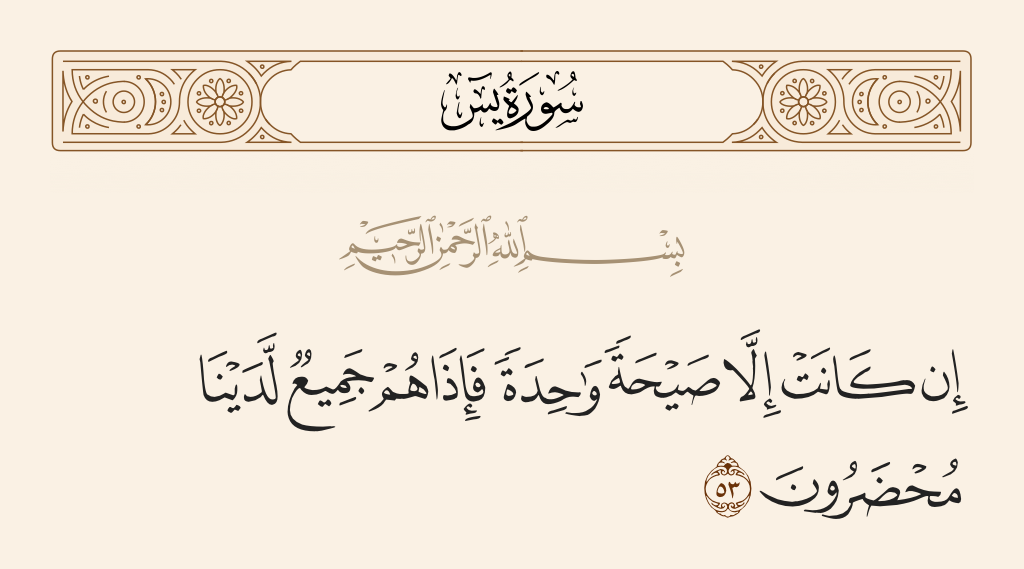 سُورَةُ يسٓ
بِسْمِ ٱللَّهِ ٱلرَّحْمَٰنِ ٱلرَّحِيمِ
إِن كَانَتْ إِلَّا صَيْحَةً وَٰحِدَةً فَإِذَا هُمْ جَمِيعٌ لَّدَيْنَا
مُحْضَرُونَ ٥٣